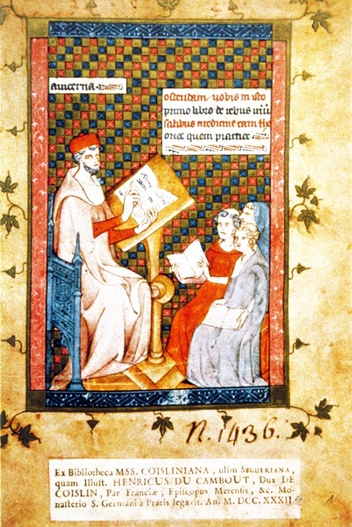 auicenna
ostendam uobis in isto
primo libro de rebus
salibus medicine tam
orice quem practice
N. 1436.
Ex Bibliotheca MSS. COISLINIANA, olim SEGUERIANA,
quam Illust. HENRICUS DU CAMBOUT, Dux DE
COISLIN, Par Franciæ, Episcopus Metensis, &c. Mo-
nasterio S. Germani à Pratis legavit. An. M. DCC. XXXII